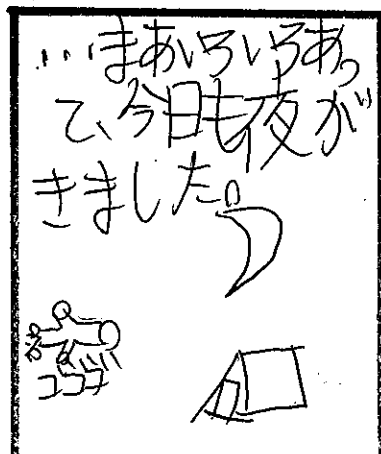 …まあいろいろあっ
て、今日も夜が
きました。
ココココ